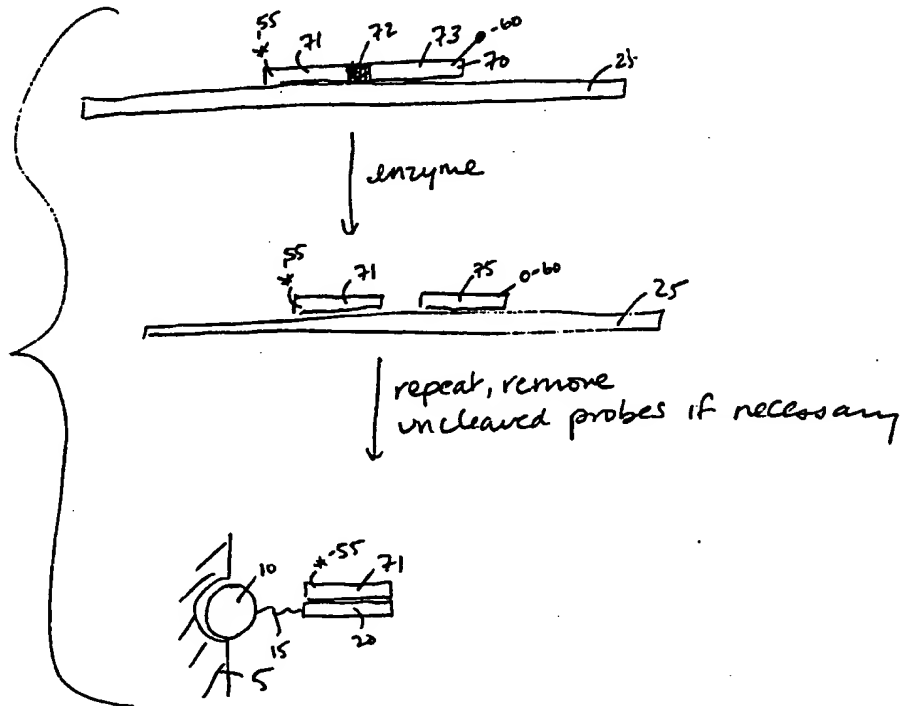 55 71 72 73 60 70 25
*
enzyme
55 71 75 60 25
*
repeat, remove
uncleaved probes if necessary
*-55 71
10
15 20
5